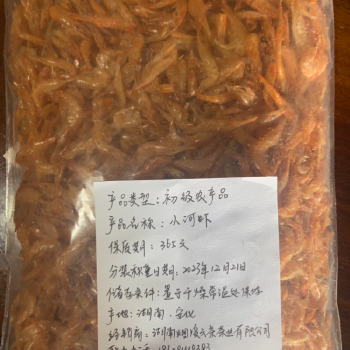 产品类型：初级农产品
产品名称：小河虾
保质期：365天
分装称重日期：2023年12月21日
储存条件：置于干燥常温处保存
产地：湖南·安化
经销商：湖南烟凌云农业有限公司